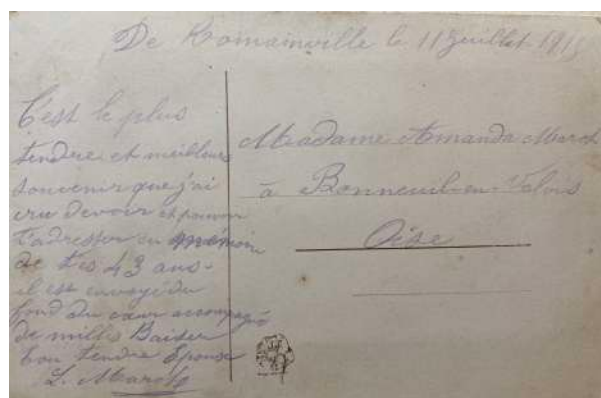 De Romainville le 11 Juillet 1915
C'est le plus
tendre et meilleur
souvenir que j'ai
cru devoir et pouvoir
t'adresser en mémoire
de tes 43 ans.
il est envoyé du
fond du cœur accompagné
de milles Baiser
ton tendre Epoux
L. March
Madame Amanda March
à Bonneuil-en-Valois
Oise